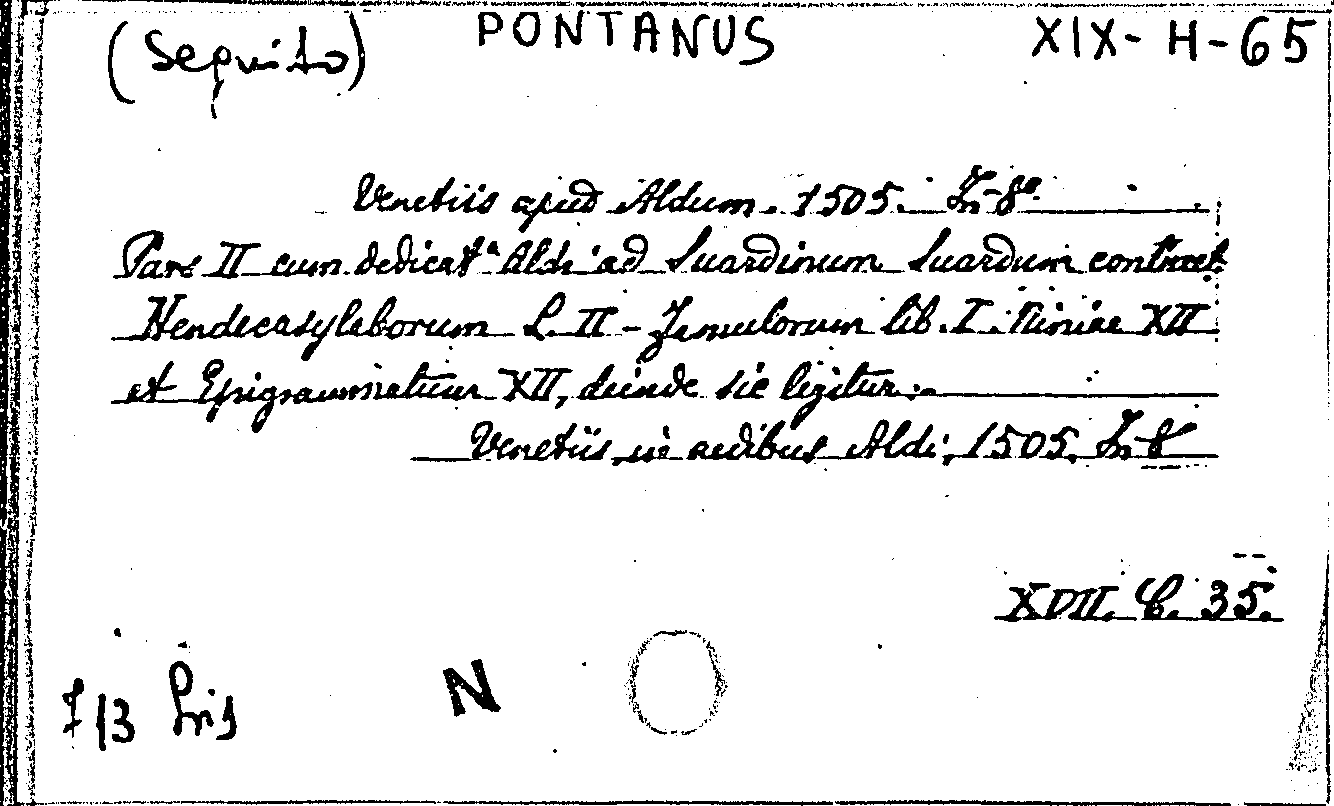 (Seguito) PONTANUS XIX-H-65
Venetiis apud Aldum. 1505. In-8º.
Pars II cum dedicatª Aldi ad Suardinum Suardum
Hendecasylaborum L. II - lib. I. XII
et Epigrammatum XII, deinde sic legitur:
Venetiis, in aedibus Aldi, 1505. In-8º
XVII. C. 35.
N